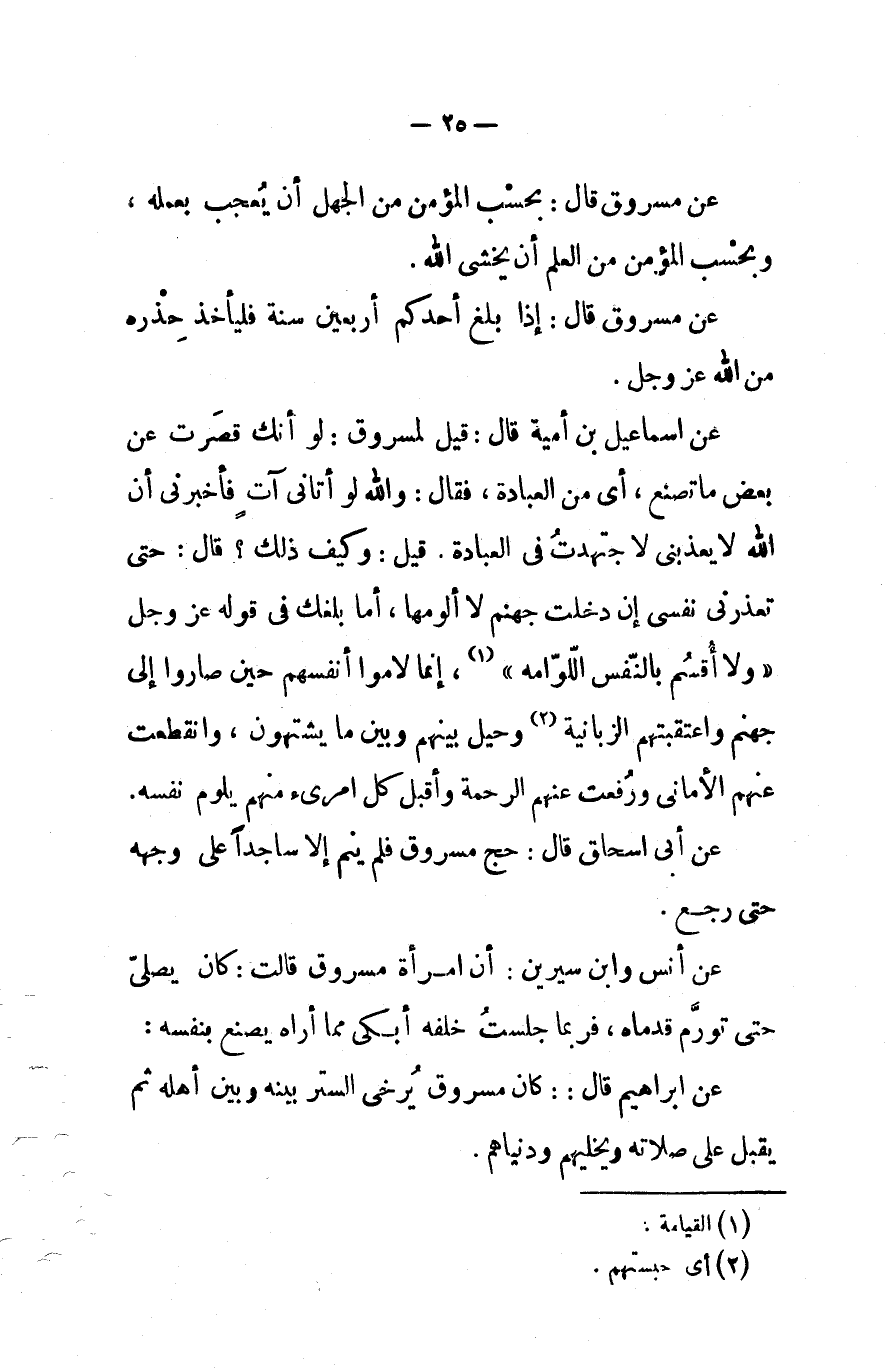 — ٢٥ —
عن مسروق قال : بحسْب المؤمن من الجهل أن يُعجب بعمله ،
وبحسْب المؤمن من العلم أن يخشى الله .
عن مسروق قال : إذا بلغ أحدكم أربعين سنة فليأخذ حِذْره
من الله عز وجل .
عن اسماعيل بن أمية قال : قيل لمسروق : لو أنك قصَرت عن
بعض ماتصنع ، أى من العبادة ، فقال : والله لو أتانى آتٍ فأخبرنى أن
الله لايعذبنى لاجتهدتُ فى العبادة . قيل : وكيف ذلك ؟ قال : حتى
تعذرنى نفسى إن دخلت جهنم لا ألومها ، أما بلغك فى قوله عز وجل
« ولا أُقسُم بالنّفس اللّوّامه » (١) ، إنما لاموا أنفسهم حين صاروا إلى
جهنم واعتقبتهم الزبانية (٢) وحيل بينهم وبين ما يشتهون ، وانقطعت
عنهم الأمانى ورُفعت عنهم الرحمة وأقبل كل امرىء منهم يلوم نفسه.
عن أبى اسحاق قال : حج مسروق فلم ينم إلا ساجداً على وجهه
حتى رجع .
عن أنس وابن سيرين : أن امرأة مسروق قالت : كان يصلىّ
حتى تورَّم قدماه ، فربما جلستُ خلفه أبكى مما أراه يصنع بنفسه :
عن ابراهيم قال : : كان مسروق يُرخى الستر بينه وبين أهله ثم
يقبل على صلاته ويخليهم ودنياهم .
(١) القيامة :
(٢) أى حبستهم .